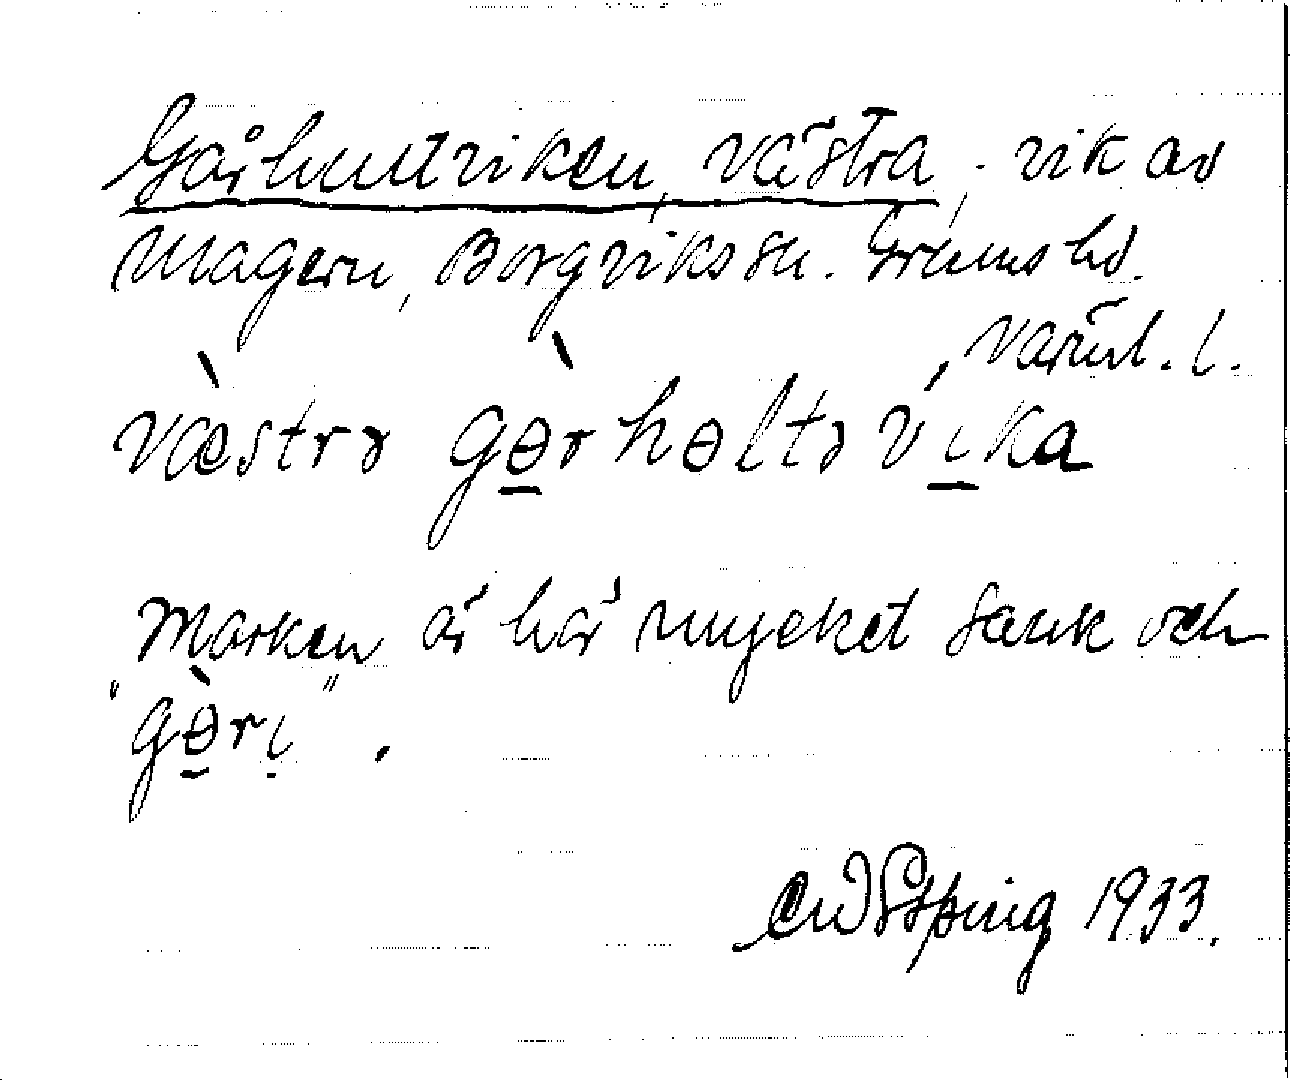 Gårhultviken, västra, vik av
Magern, Borgviks sn. Grums hd.
Värml. l.
væstrə gɵrhɵltəvika
Marken är här mycket sank och
"gɵri".
1933.